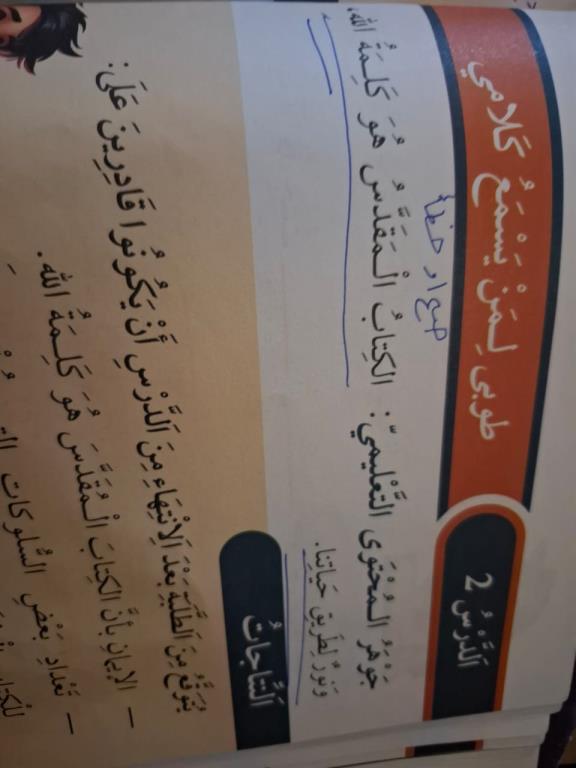 اَلدَّرْسُ 2
طوبى لِمَنْ يَسْمَعُ كَلامي
صح او خطأ
جَوْهَرُ الْـمُحْتَوَى التَّعْليمِيّ: الكِتابُ الْـمُقَدَّسُ هُوَ كَلِمَةُ اللهِ،
وَنورٌ لِطَريقِ حَياتِنا.
اَلنَّتاجاتُ
يُتَوَقَّعُ مِنَ الطَّلَبَةِ بَعْدَ الاِنْتِهاءِ مِنَ الدَّرْسِ أَنْ يَكُونُوا قَادِرِينَ عَلَى:
– الإيمانِ بأنَّ الكِتابَ الْـمُقَدَّسَ هُوَ كَلِمَةُ اللهِ.
– تَعْدادِ بَعْضِ السُّلوكات